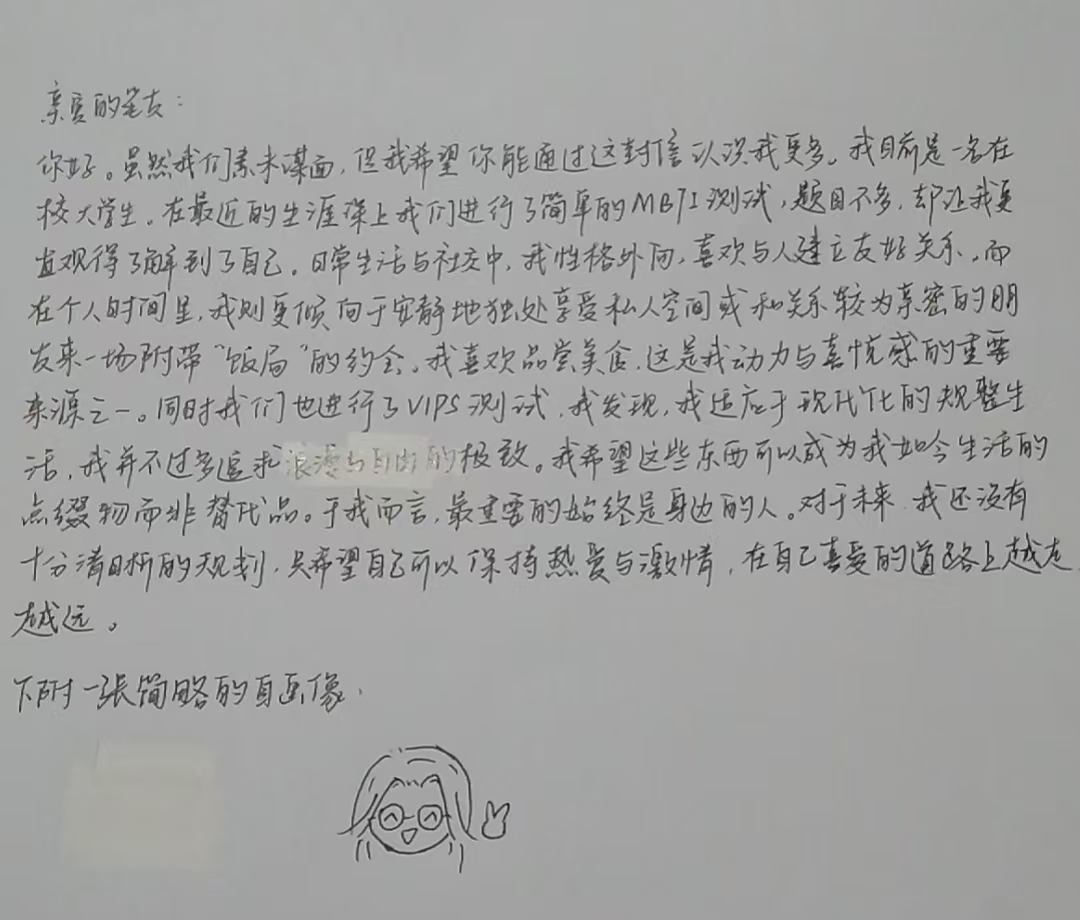 亲爱的笔友：
你好。虽然我们素未谋面，但我希望你能通过这封信认识我更多。我目前是一名在
校大学生。在最近的生涯课上我们进行了简单的MBTI测试，题目不多，却让我更
直观得了解到了自己。日常生活与社交中，我性格外向，喜欢与人建立友好关系，而
在个人时间里，我则更倾向于安静地独处享受私人空间或和关系较为亲密的朋
友来一场附带“饭局”的约会。我喜欢品尝美食，这是我动力与喜悦感的重要
来源之一。同时我们也进行了VIPS测试，我发现，我适应于现代化的规整生
活，我并不过多追求浪漫与自由的极致。我希望这些东西可以成为我如今生活的
点缀物而非替代品。于我而言，最重要的始终是身边的人。对于未来，我还没有
十分清晰的规划，只希望自己可以保持热爱与激情，在自己喜爱的道路上越走
越远。
下附一张简略的自画像.